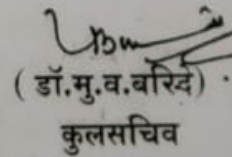 ( डॉ.मु.व.बरिदे ) .
कुलसचिव